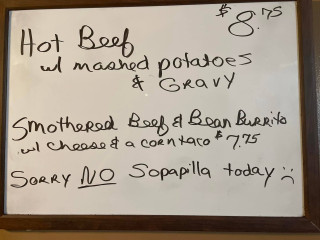 Hot Beef $8.75
w/ mashed potatoes
& GRAVY
Smothered Beef & Bean Burrito
w/ cheese & a corn taco $7.75
SORRY NO Sopapilla today :(